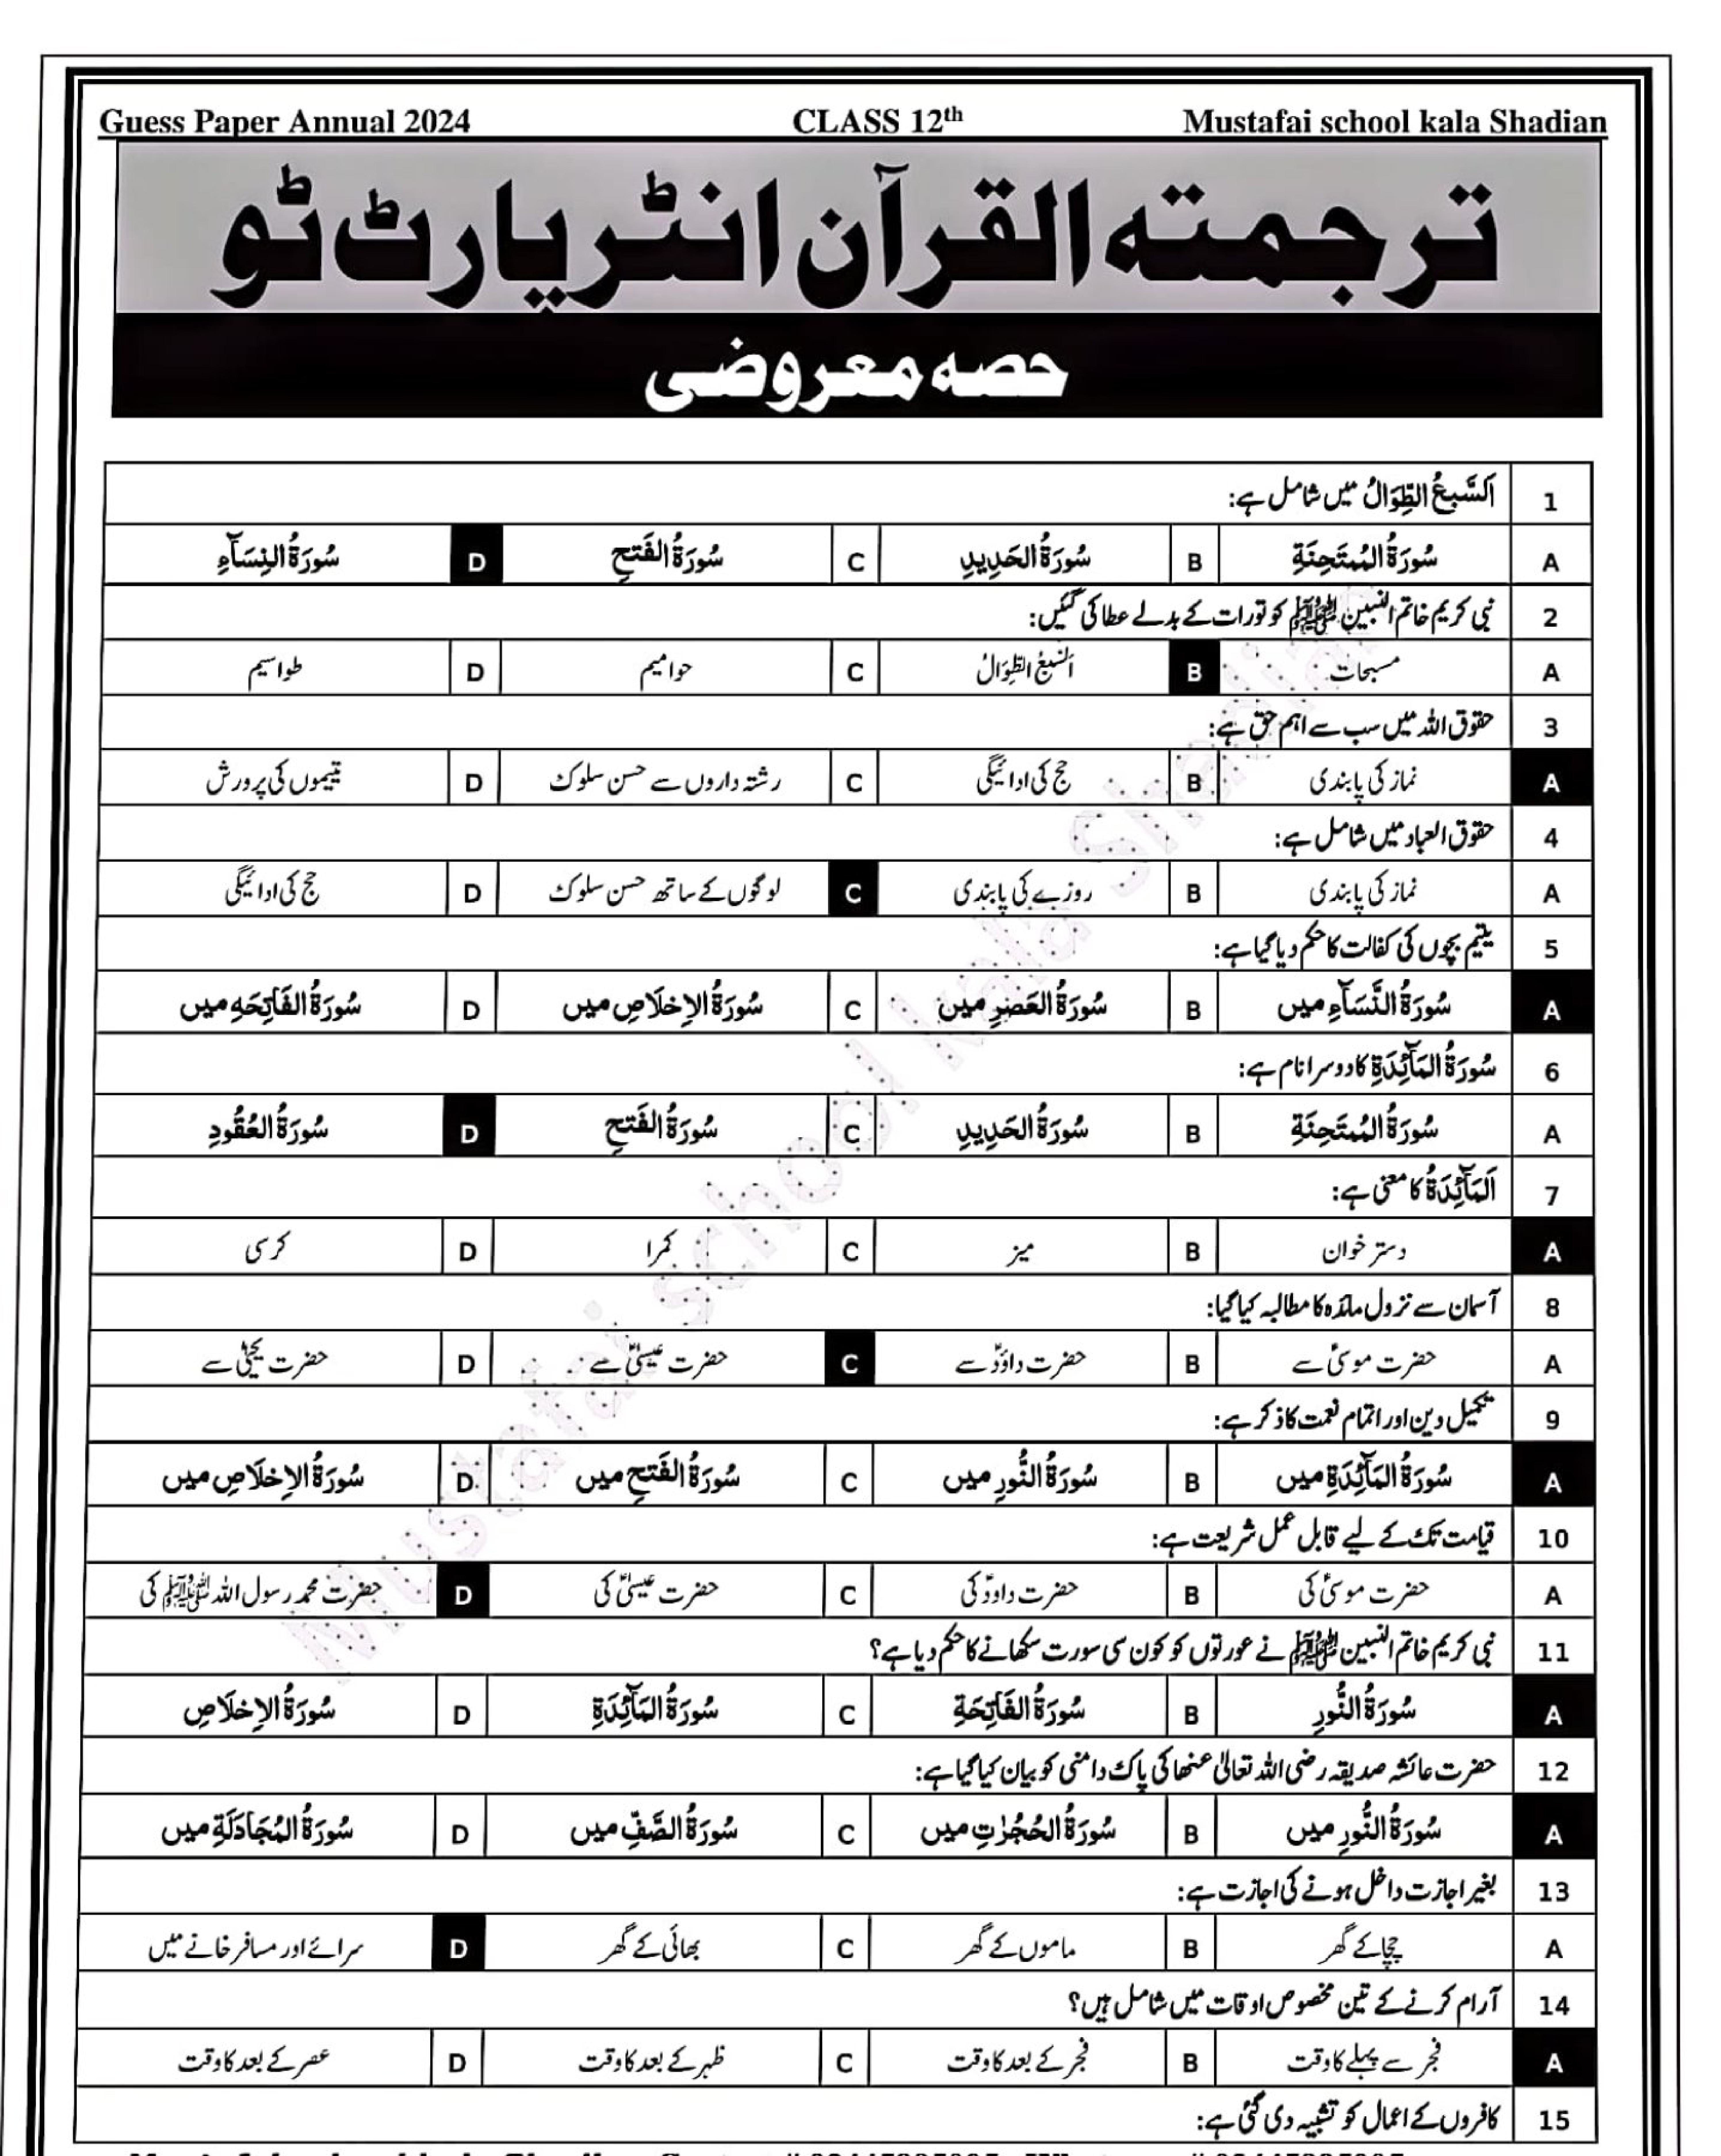 Guess Paper Annual 2024 CLASS 12th Mustafai school kala Shadian
ترجمتہ القرآن انٹرپارٹ ٹو
حصہ معروضی
1 اَلسَّبعُ الطِّوَالُ میں شامل ہے:
A سُورَۃُ المُمتَحِنَۃِ B سُورَۃُ الحَدِیدِ C سُورَۃُ الفَتحِ D سُورَۃُ النِسَآءِ
2 نبی کریم خاتم النبیین ﷺ کو تورات کے بدلے عطا کی گئیں:
A مسبحات B اَلسَّبعُ الطِّوَالُ C حوامیم D طواسیم
3 حقوق اللہ میں سب سے اہم حق ہے:
A نماز کی پابندی B حج کی ادائیگی C رشتہ داروں سے حسن سلوک D یتیموں کی پرورش
4 حقوق العباد میں شامل ہے:
A نماز کی پابندی B روزے کی پابندی C لوگوں کے ساتھ حسن سلوک D حج کی ادائیگی
5 یتیم بچوں کی کفالت کا حکم دیا گیا ہے:
A سُورَۃُ النَّسَآءِ میں B سُورَۃُ العَصرِ میں C سُورَۃُ الاِخلَاصِ میں D سُورَۃُ الفَاتِحَہِ میں
6 سُورَۃُ المَآئِدَۃِ کا دوسرا نام ہے:
A سُورَۃُ المُمتَحِنَۃِ B سُورَۃُ الحَدِیدِ C سُورَۃُ الفَتحِ D سُورَۃُ العُقُودِ
7 اَلمَآئِدَۃُ کا معنی ہے:
A دستر خوان B میز C کمرا D کرسی
8 آسمان سے نزول مائدہ کا مطالبہ کیا گیا:
A حضرت موسیٰؑ سے B حضرت داؤدؑ سے C حضرت عیسیٰؑ سے D حضرت یحییٰؑ سے
9 تکمیل دین اور اتمام نعمت کا ذکر ہے:
A سُورَۃُ المَآئِدَۃِ میں B سُورَۃُ النُّورِ میں C سُورَۃُ الفَتحِ میں D سُورَۃُ الاِخلَاصِ میں
10 قیامت تک کے لیے قابل عمل شریعت ہے:
A حضرت موسیٰؑ کی B حضرت داودؑ کی C حضرت عیسیٰؑ کی D حضرت محمد رسول اللہ ﷺ کی
11 نبی کریم خاتم النبیین ﷺ نے عورتوں کو کون سی سورت سکھانے کا حکم دیا ہے؟
A سُورَۃُ النُّورِ B سُورَۃُ الفَاتِحَۃِ C سُورَۃُ المَآئِدَۃِ D سُورَۃُ الاِخلَاصِ
12 حضرت عائشہ صدیقہ رضی اللہ تعالیٰ عنھا کی پاک دامنی کو بیان کیا گیا ہے:
A سُورَۃُ النُّورِ میں B سُورَۃُ الحُجُرٰتِ میں C سُورَۃُ الصَّفِّ میں D سُورَۃُ المُجَادَلَۃِ میں
13 بغیر اجازت داخل ہونے کی اجازت ہے:
A چچا کے گھر B ماموں کے گھر C بھائی کے گھر D سرائے اور مسافر خانے میں
14 آرام کرنے کے تین مخصوص اوقات میں شامل ہیں؟
A فجر سے پہلے کا وقت B فجر کے بعد کا وقت C ظہر کے بعد کا وقت D عصر کے بعد کا وقت
15 کافروں کے اعمال کو تشبیہ دی گئی ہے:
Mustafai school kala Shadian